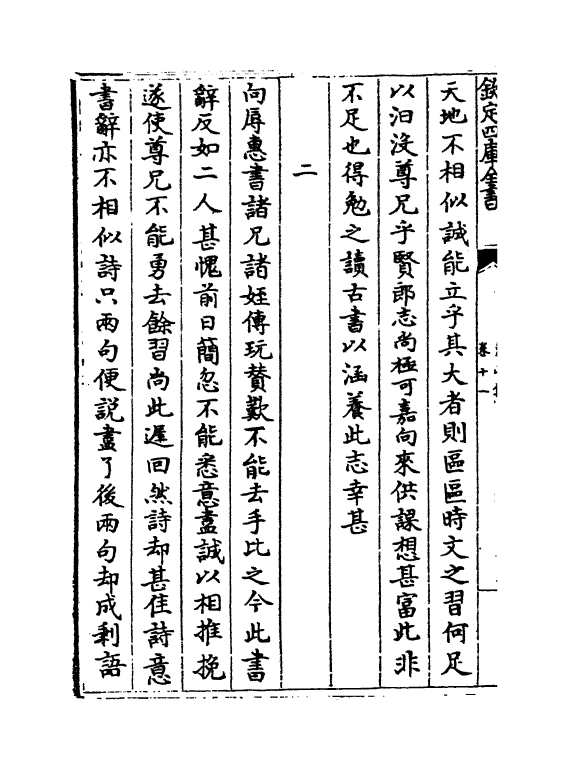 欽定四庫全書
卷十一
天地不相似誠能立乎其大者則區區時文之習何足
以汩沒尊兄乎賢郎志尚極可嘉向來供課想甚富此非
不足也得勉之讀古書以涵養此志幸甚
二
向辱惠書諸兄諸姪傳玩贊歎不能去手比之今此書
辭反如二人甚愧前日簡忽不能悉意盡誠以相推挽
遂使尊兄不能勇去餘習尚此遲回然詩却甚佳詩意
書辭亦不相似詩只兩句便説盡了後兩句却成剩語